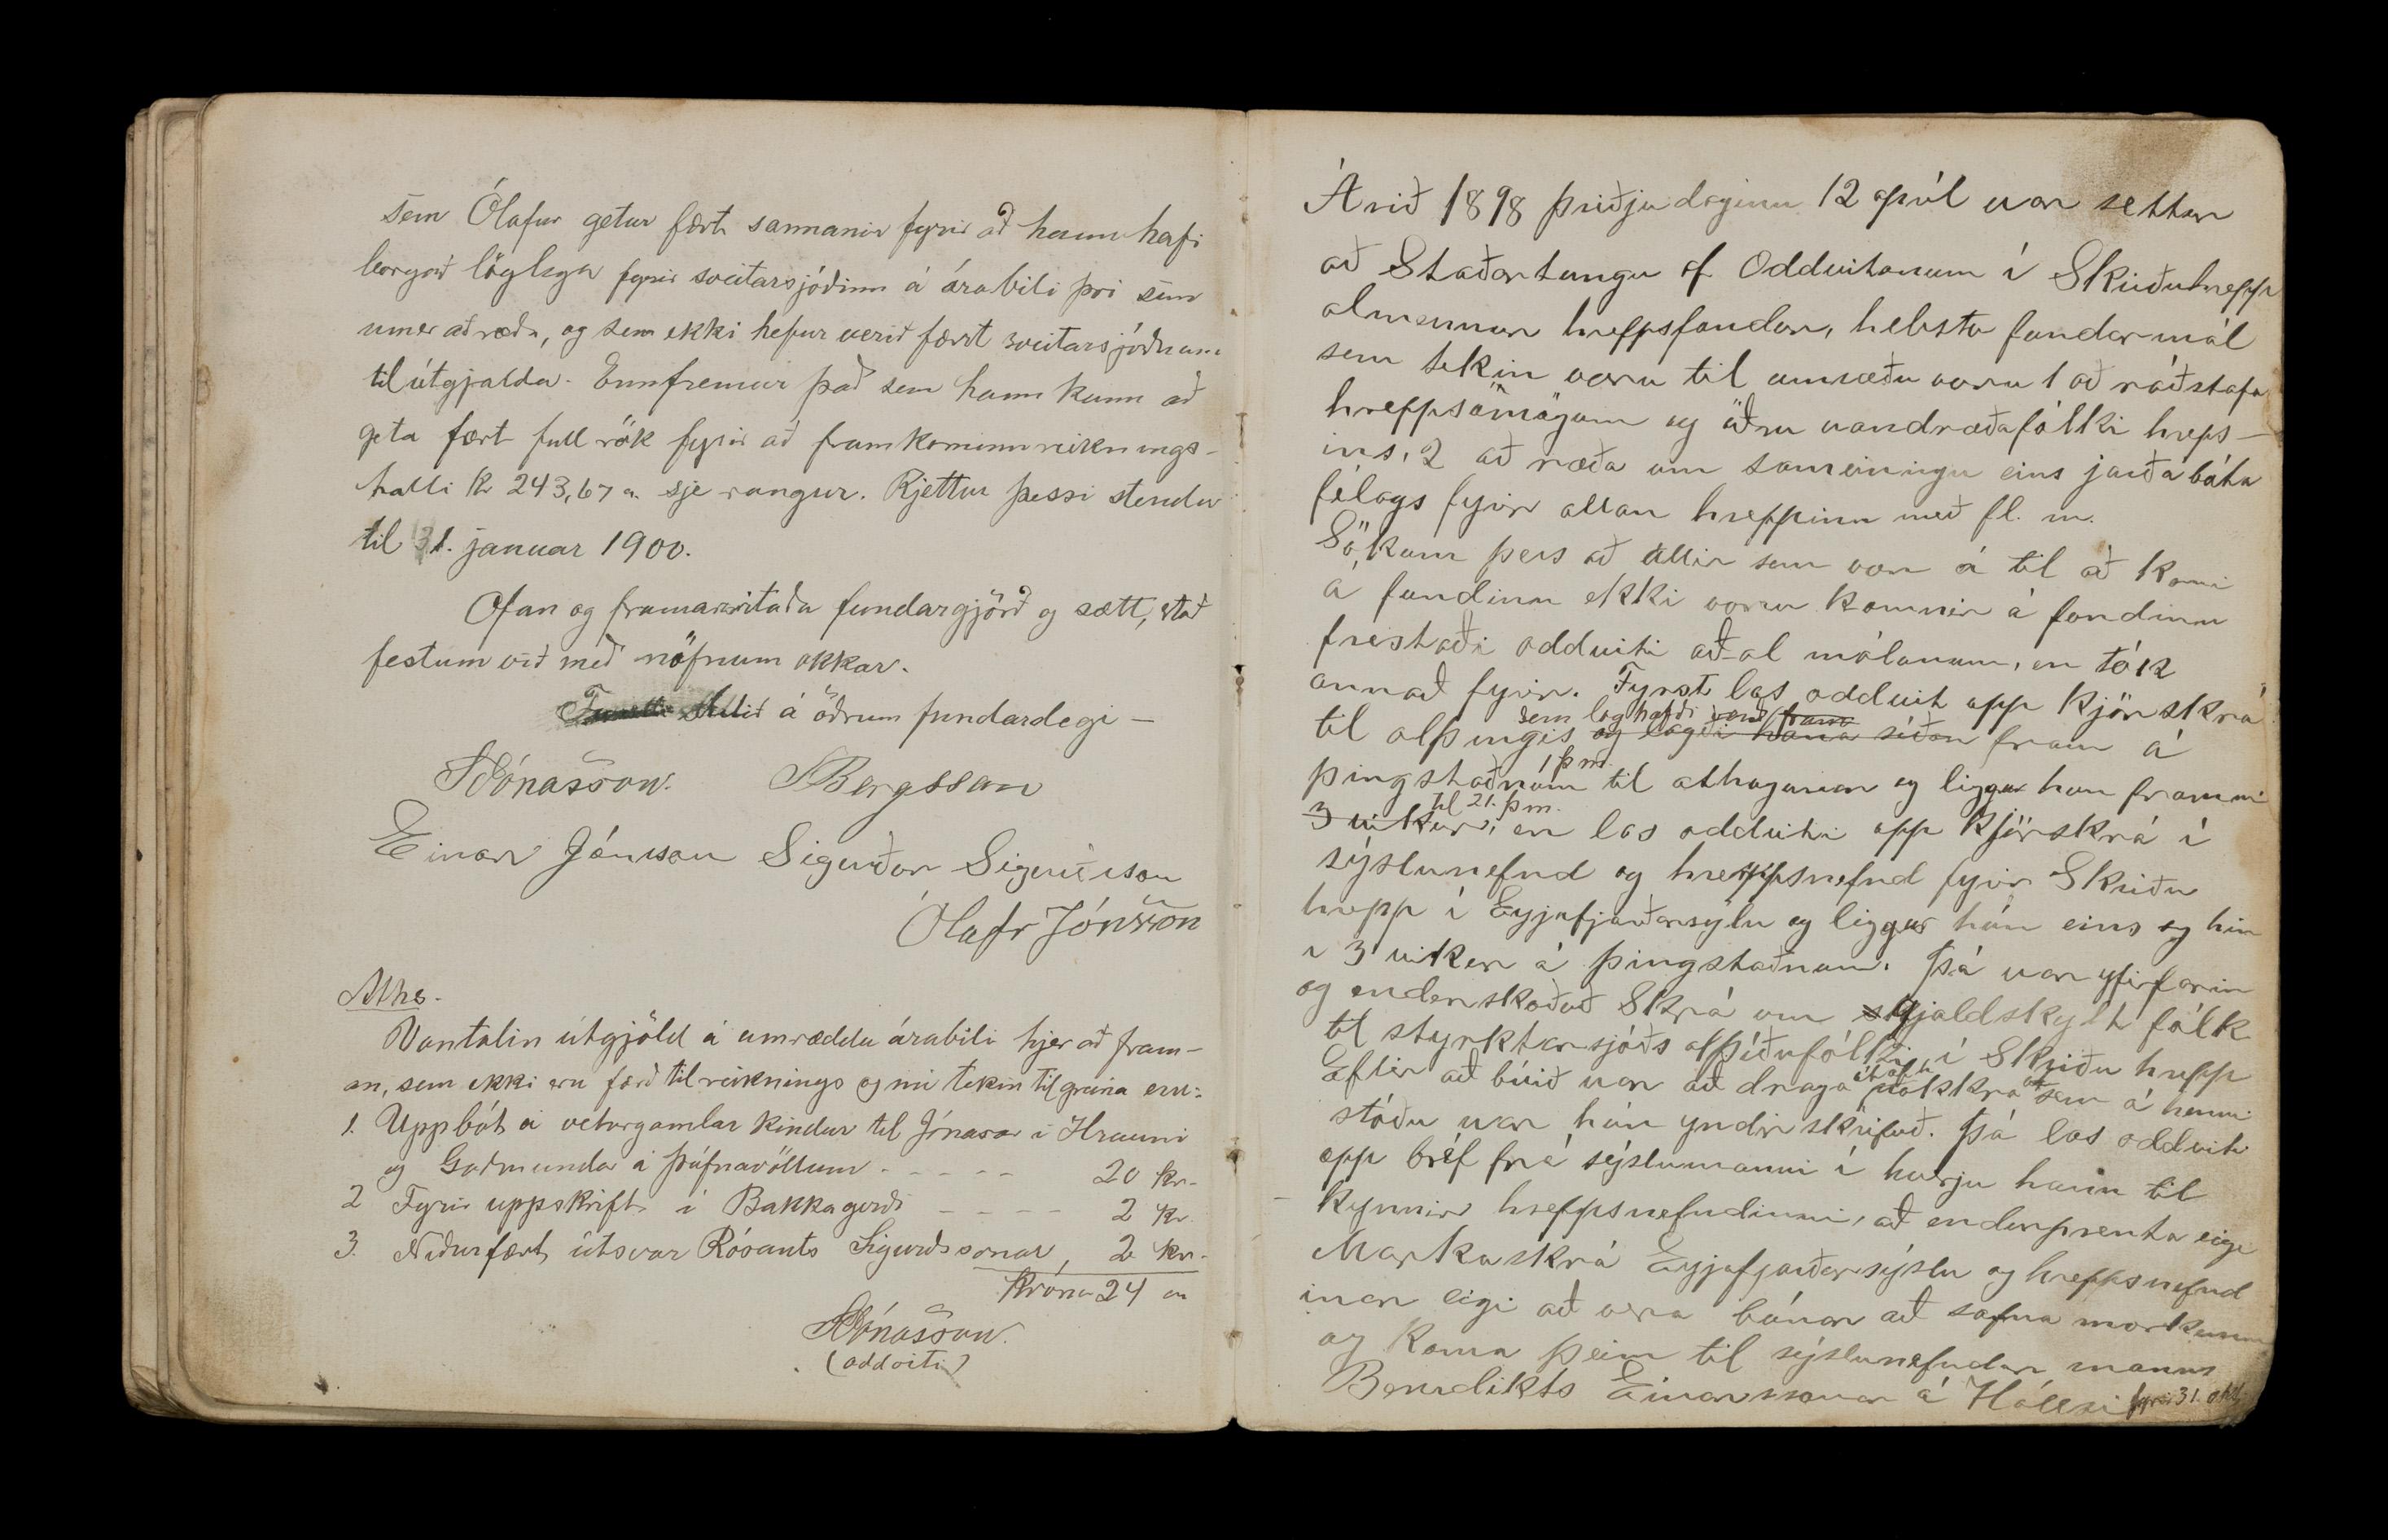 sem Ólafur getur fært sannanir fyrir að hann hafi
borgað löglega fyrir sveitarsjóðinn á árabili því sem
umer aðræða, og sem ekki hefur verið fært sveitarsjóðnum
til útgjalda. Ennfremur það sem hann kann að
geta fært full rök fyrir að framkominn reiknings-
halli kr 243,67 a. sje rangur. Rjettur þessi stendur
til 31. januar 1900.
Ofan og framanritaða fundargjörð og sætt, stað
festum við með nöfnum okkar.
slitið á öðrum fundardegi —
Jónasson. Bergsson
Einar Jónsson Sigurður Sigurðsson
Ólafr Jónsson
Aths.
Vantalin útgjöld á umræddu árabili hjer að fram-
an, sem ekki eru færð til reiknings og nú tekin til greina eru:
1. Uppbót á veturgamlar kindur til Jónasar í Hrauni
og Guðmundar á Þúfnavöllum - - - - - 20 kr.
2 Fyrir uppskrift í Bakkagerði - - - - 2 kr.
3. Niðurfært útsvar Rósants Sigurðssonar, 2 kr.
Krónur 24 au
Jónasson.
(oddviti)
Árið 1898 þriðjudaginn 12 apríl var settur
að Staðartungu af Oddvitanum í Skriðuhrepp
almennur hreppsfundur, helstu fundarmál
sem tekin voru til umræðu voru 1 að ráðstafa
hreppsómögum og öðru vandræðafólki hreps-
ins, 2 að ræða um sameiningu eins jarðabóta
félags fyrir allan hreppinn með fl. m.
Sökum þess að allir sem von á til að komi
á fundinn ekki voru komnir á fundinn
frestaði oddviti að-al málunum, en tók
annað fyrir. Fyrst las oddvit upp kjörskrá
til alþingis og lagði hana síðan sem lág hafði verið fram fram á
þingstaðnum 1 þm. til athugunar og liggur hun frammi
3 vikur, til 21. þm. en las oddviti upp kjörskrá í
sýslunefnd og hreppsnefnd fyrir Skriðu
hrepp í Eyjafjarðarsýlu og liggur hún eins og hin
í 3 vikur á þingstaðnum. Þá var yfirfarin
og endurskoðuð Skrá um gjaldskylt fólk
til styrktarsjóðs alþíðufólki, í Skriðu hrepp
Eftir að búið var að draga út af skrá sem á henni
stóðu var hún yndirskrifuð. Þá las oddviti
upp bréf frá sýslumanni í hverju hann til
kynnir hreppsnefndinni, að endurprenta eigi
Markaskrá Eyjafjarðarsýslu og hreppsnefnd
inar eigi að vera búnar að safna mörkunum
og koma þeim til sýslunefndar manns
Benedikts Einarssonar á Hálsi fyrir 31. okt.